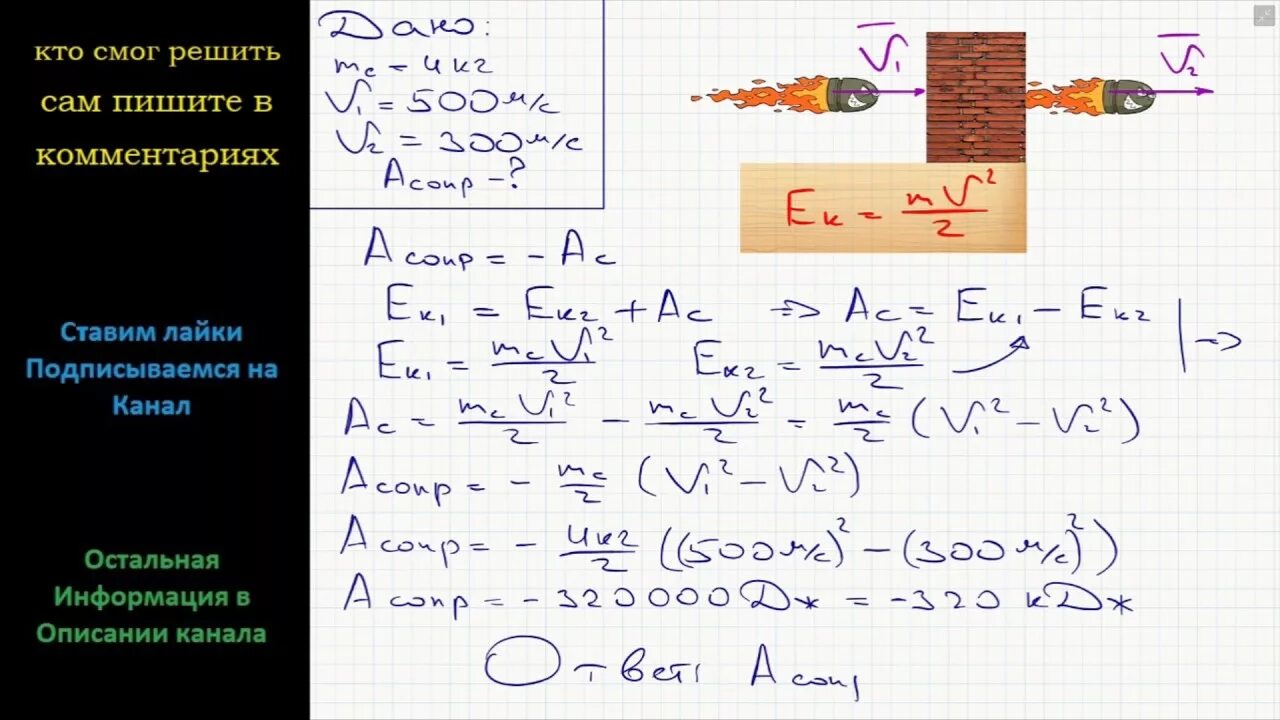 кто смог решить
сам пишите в
комментариях
Ставим лайки
Подписываемся на
Канал
Остальная
Информация в
Описании канала
Дано:
mс = 4кг
V₁ = 500м/с
V₂ = 300м/с
Aсопр - ?
V₁
V₂
Eк = mV²/2
Aсопр = - Aс
Eк₁ = Eк₂ + Aс => Aс = Eк₁ - Eк₂ | =>
Eк₁ = mсV₁²/2 Eк₂ = mсV₂²/2
Aс = mсV₁²/2 - mсV₂²/2 = mс/2 (V₁² - V₂²)
Aсопр = - mс/2 (V₁² - V₂²)
Aсопр = - 4кг/2 ((500м/с)² - (300м/с)²)
Aсопр = - 320000 Дж = -320 кДж
Ответ: Aсопр